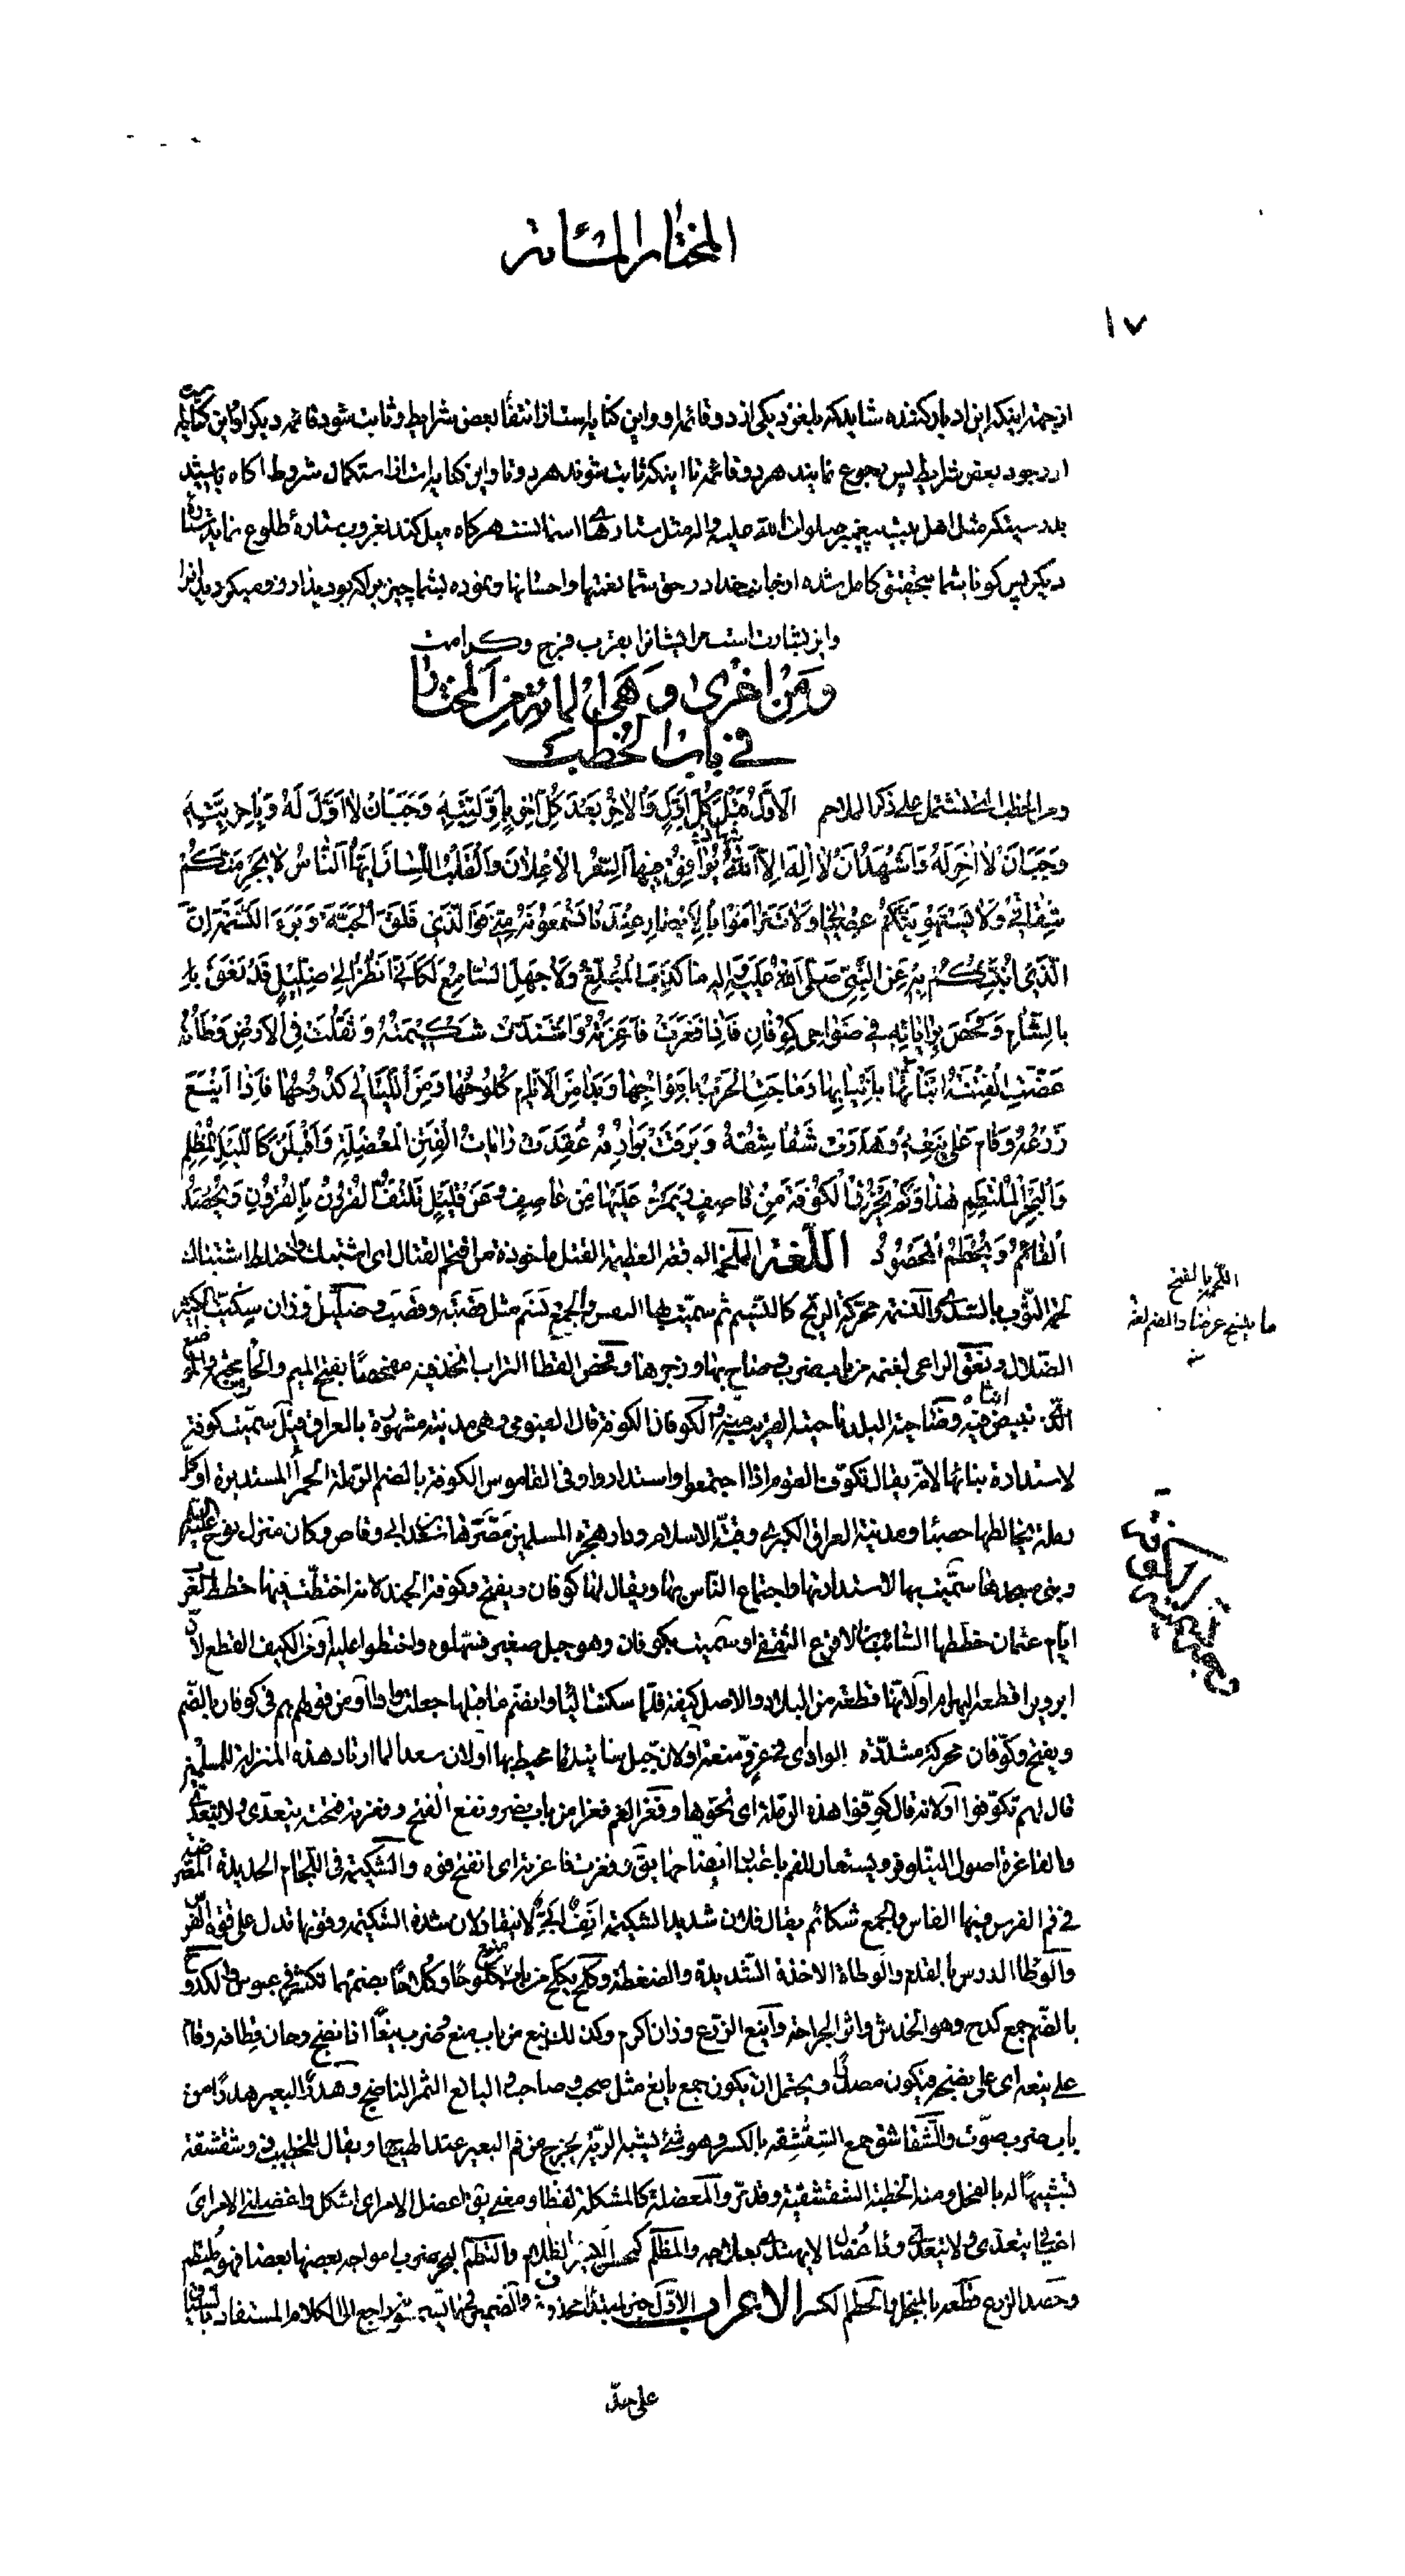 المختار المأة
١٧
از جهة اینکه این ادبار کننده شاید که بلغزد یکی از دو قائمه او و این کنایه است از انتفاء بعض شرایط و ثابت شود قائمه دیگر او و این کنایه است
از وجود بعض شرایط پس رجوع نمایند هر دو قائمه تا اینکه ثابت شوند هر دو تا و این کنایه است از استکمال شروط آگاه باشید
بدرستیکه مثل اهل بیت پیغمبر صلوات الله علیه وآله مثل ستارهای آسمانست هرگاه میل کند بغروب ستارۀ طلوع نماید ستارۀ
دیگر پس گویا بشما بتحقیق کامل شده از جانب خدا در حق شما نعمتها و احسانها و نموده بشما چیزیرا که بودید آرزو میکردید آنرا
و این بشارت است مر ایشانرا بقرب فرج و کرامت
ومن اخرى وهي المأة من المختار
في باب الخطب
ومن الخطب التي تشتمل على ذكر الملاحم الْأَوَّلُ قَبْلَ كُلِّ أَوَّلٍ وَالْآخِرُ بَعْدَ كُلِّ آخِرٍ بِأَوَّلِيَّتِهِ وَجَبَ أَنْ لا أَوَّلَ لَهُ وَبِآخِرِيَّتِهِ
وَجَبَ أَنْ لا آخِرَ لَهُ وَأَشْهَدُ أَنْ لا إِلهَ إِلَّا اللهُ شهادة يُوافِقُ فِيهَا السِّرُّ الْإِعْلانَ وَالْقَلْبُ اللِّسانَ أَيُّهَا النّاسُ لا يَجْرِمَنَّكُمْ
شِقاقي وَلا يَسْتَهْوِيَنَّكُمْ عِصْياني وَلا تَتَرامَوْا بِالْأَبْصارِ عِنْدَ ما تَسْمَعُونَهُ مِنّي فَوَ الَّذي فَلَقَ الْحَبَّةَ وَبَرَءَ النَّسَمَةَ إِنَّ
الَّذي أُنَبِّئُكُمْ بِهِ عَنِ النَّبِيِّ صَلَّى اللهُ عَلَيْهِ وَآلِهِ ما كَذَبَ الْمُبَلِّغُ وَلا جَهِلَ السّامِعُ لَكَأَنّي أَنْظُرُ إِلى ضِلّيلٍ قَدْ نَعَقَ
بِالشّامِ وَفَحَصَ بِراياتِهِ في ضَواحي كُوفانَ فَإِذا فَغَرَتْ فاغِرَتُهُ وَاشْتَدَّتْ شَكيمَتُهُ وَثَقُلَتْ فِي الْأَرْضِ وَطْأَتُهُ
عَضَّتِ الْفِتْنَةُ أَبْنائَها بِأَنْيابِها وَماجَتِ الْحَرْبُ بِأَمْواجِها وَبَدا مِنَ الْأَيّامِ كُلُوحُها وَمِنَ اللَّيالي كُدُوحُها فَإِذا أَيْنَعَ
زَرْعُهُ وَقامَ عَلى يَنْعِهِ وَهَدَرَتْ شَقاشِقُهُ وَبَرَقَتْ بَوارِقُهُ عُقِدَتْ راياتُ الْفِتَنِ الْمُعْضِلَةِ وَأَقْبَلْنَ كَاللَّيْلِ الْمُظْلِمِ
وَالْبَحْرِ الْمُلْتَطِمِ هذا وَكَمْ يَخْرِقُ الْكُوفَةَ مِنْ قاصِفٍ وَيَمُرُّ عَلَيْها مِنْ عاصِفٍ وَعَنْ قَليلٍ تَلْتَفُّ الْقُرُونُ بِالْقُرُونِ وَيُحْصَدُ
الْقائِمُ وَيُحْطَمُ الْمَحْصُودُ اللغة الملحمة الوقعة العظيمة القتل مأخوذة من التحم القتال اى اشتبك واختلط اشتباك
لحمة الثوب بالسدى والنسمة محركة الريح كالنسيم ثم سميت بها النفس والجمع نسم مثل قصبة وقصب وضليل وزان سكيت الكثير
الضلال ونعق الراعى لغنمه من باب ضرب صاح بها وزجرها وفحص القطا التراب اتخذ فيه مفحصا بفتح الميم والحاء وهو موضع
الذى تبيض فيه وضاحية البلد ناحيته القريبة منه والكوفان الكوفة قال الفيومى وهى مدينة مشهورة بالعراق قيل سميت كوفة
لاستدارة بنائها لانه يقال تكوّف القوم اذا اجتمعوا واستداروا وفى القاموس الكوفة بالضم الرملة الحمراء المستديرة او كل
رملة يخالطها حصباء ومدينة العراق الكبرى وقبة الاسلام ودار هجرة المسلمين مصّرها سعد بن ابى وقاص وكان منزل نوح عليه السلام
وبنى مسجدها سميت بها لاستدارتها واجتماع الناس بها ويقال لها كوفان ويفتح وكوفة الجند لانه اختطت فيها خطط العرب
ايام عثمان خططها السائب بن الاقرع الثقفى او سميت بكوفان وهو جبل صغير فسهلوه واختطوا عليه او من الكيف القطع لان
ابرويز اقطعه لبهرام او لانها قطعة من البلاد والاصل كيفة فلما سكنت الياء وانضم ما قبلها جعلت واوا او من قولهم هم فى كوفان بالضم
ويفتح وكوّفان محركة مشددة الواو اى فى عز ومنعة او لان جبل ساتيدما محيط بها او لان سعدا لما ارتاد هذه المنزلة للمسلمين
قال لهم تكوّفوا او لانه قال كوّفوا هذه الرملة اى نحوها وفغر الفم فغرا من باب نصر ونفع انفتح وفغرته فتحته يتعدى ولا يتعدى
والفاغرة اصول النيلوفر ويستعار للفم باعتبار انفتاحها يق فغرت فاغرته اى انفتح فوه والشكيمة فى اللجام الحديدة المعترضة
فى فم الفرس فيها الفاس والجمع شكائم يقال فلان شديد الشكيمة انف ابىّ لا ينقاد لان شدة الشكيمة وقوتها تدل على قوة الفرس
والوطأ الدوس بالقدم والوطأة الاخذة الشديدة والضغطة وكلح يكلح من باب منع كلوحا وكلاحا بضمهما تكشر فى عبوس والكدوح
بالضم جمع كدح وهو الخدش واثر الجراحة واينع الزرع وزان اكرم وكذلك ينع من باب منع وضرب ينعا اذا نضج وحان قطافه وقام
على ينعه اى على نضجه فيكون مصدرا ويحتمل ان يكون جمع يانع مثل صحب وصاحب واليانع الثمر الناضج وهدر البعير هدرا من
باب ضرب صوّت والشقاشق جمع الشقشقه بالكسر وهو شئ يشبه الرية يخرج من فم البعير عند هيجها ويقال للخطيب ذو شقشقة
تشبيها له بالفحل ومنه الخطبة الشقشقية وقد مر والمعضلة كالمشكلة لفظا ومعنى يق اعضل الامر اى اشكل واعضلنى الامر اى
اعيانى يتعدى ولا يتعدى وداء عضال لا يهتدى بعلاجه والمظلم كمحسن الظلام والتطم البحر ضرب امواجه بعضها بعضا فهو ملتطم
وحصد الزرع قطعه بالمنجل والحطم الكسر الاعراب الاول خبر لمبتدأ محذوف والضمير فى بها تسمعونه راجع الى الكلام المستفاد بالسياق
اللحمة بالفتح
ما ينسج عرضا والضم لغة
منه
وجه تسمية الكوفة
على حدّ